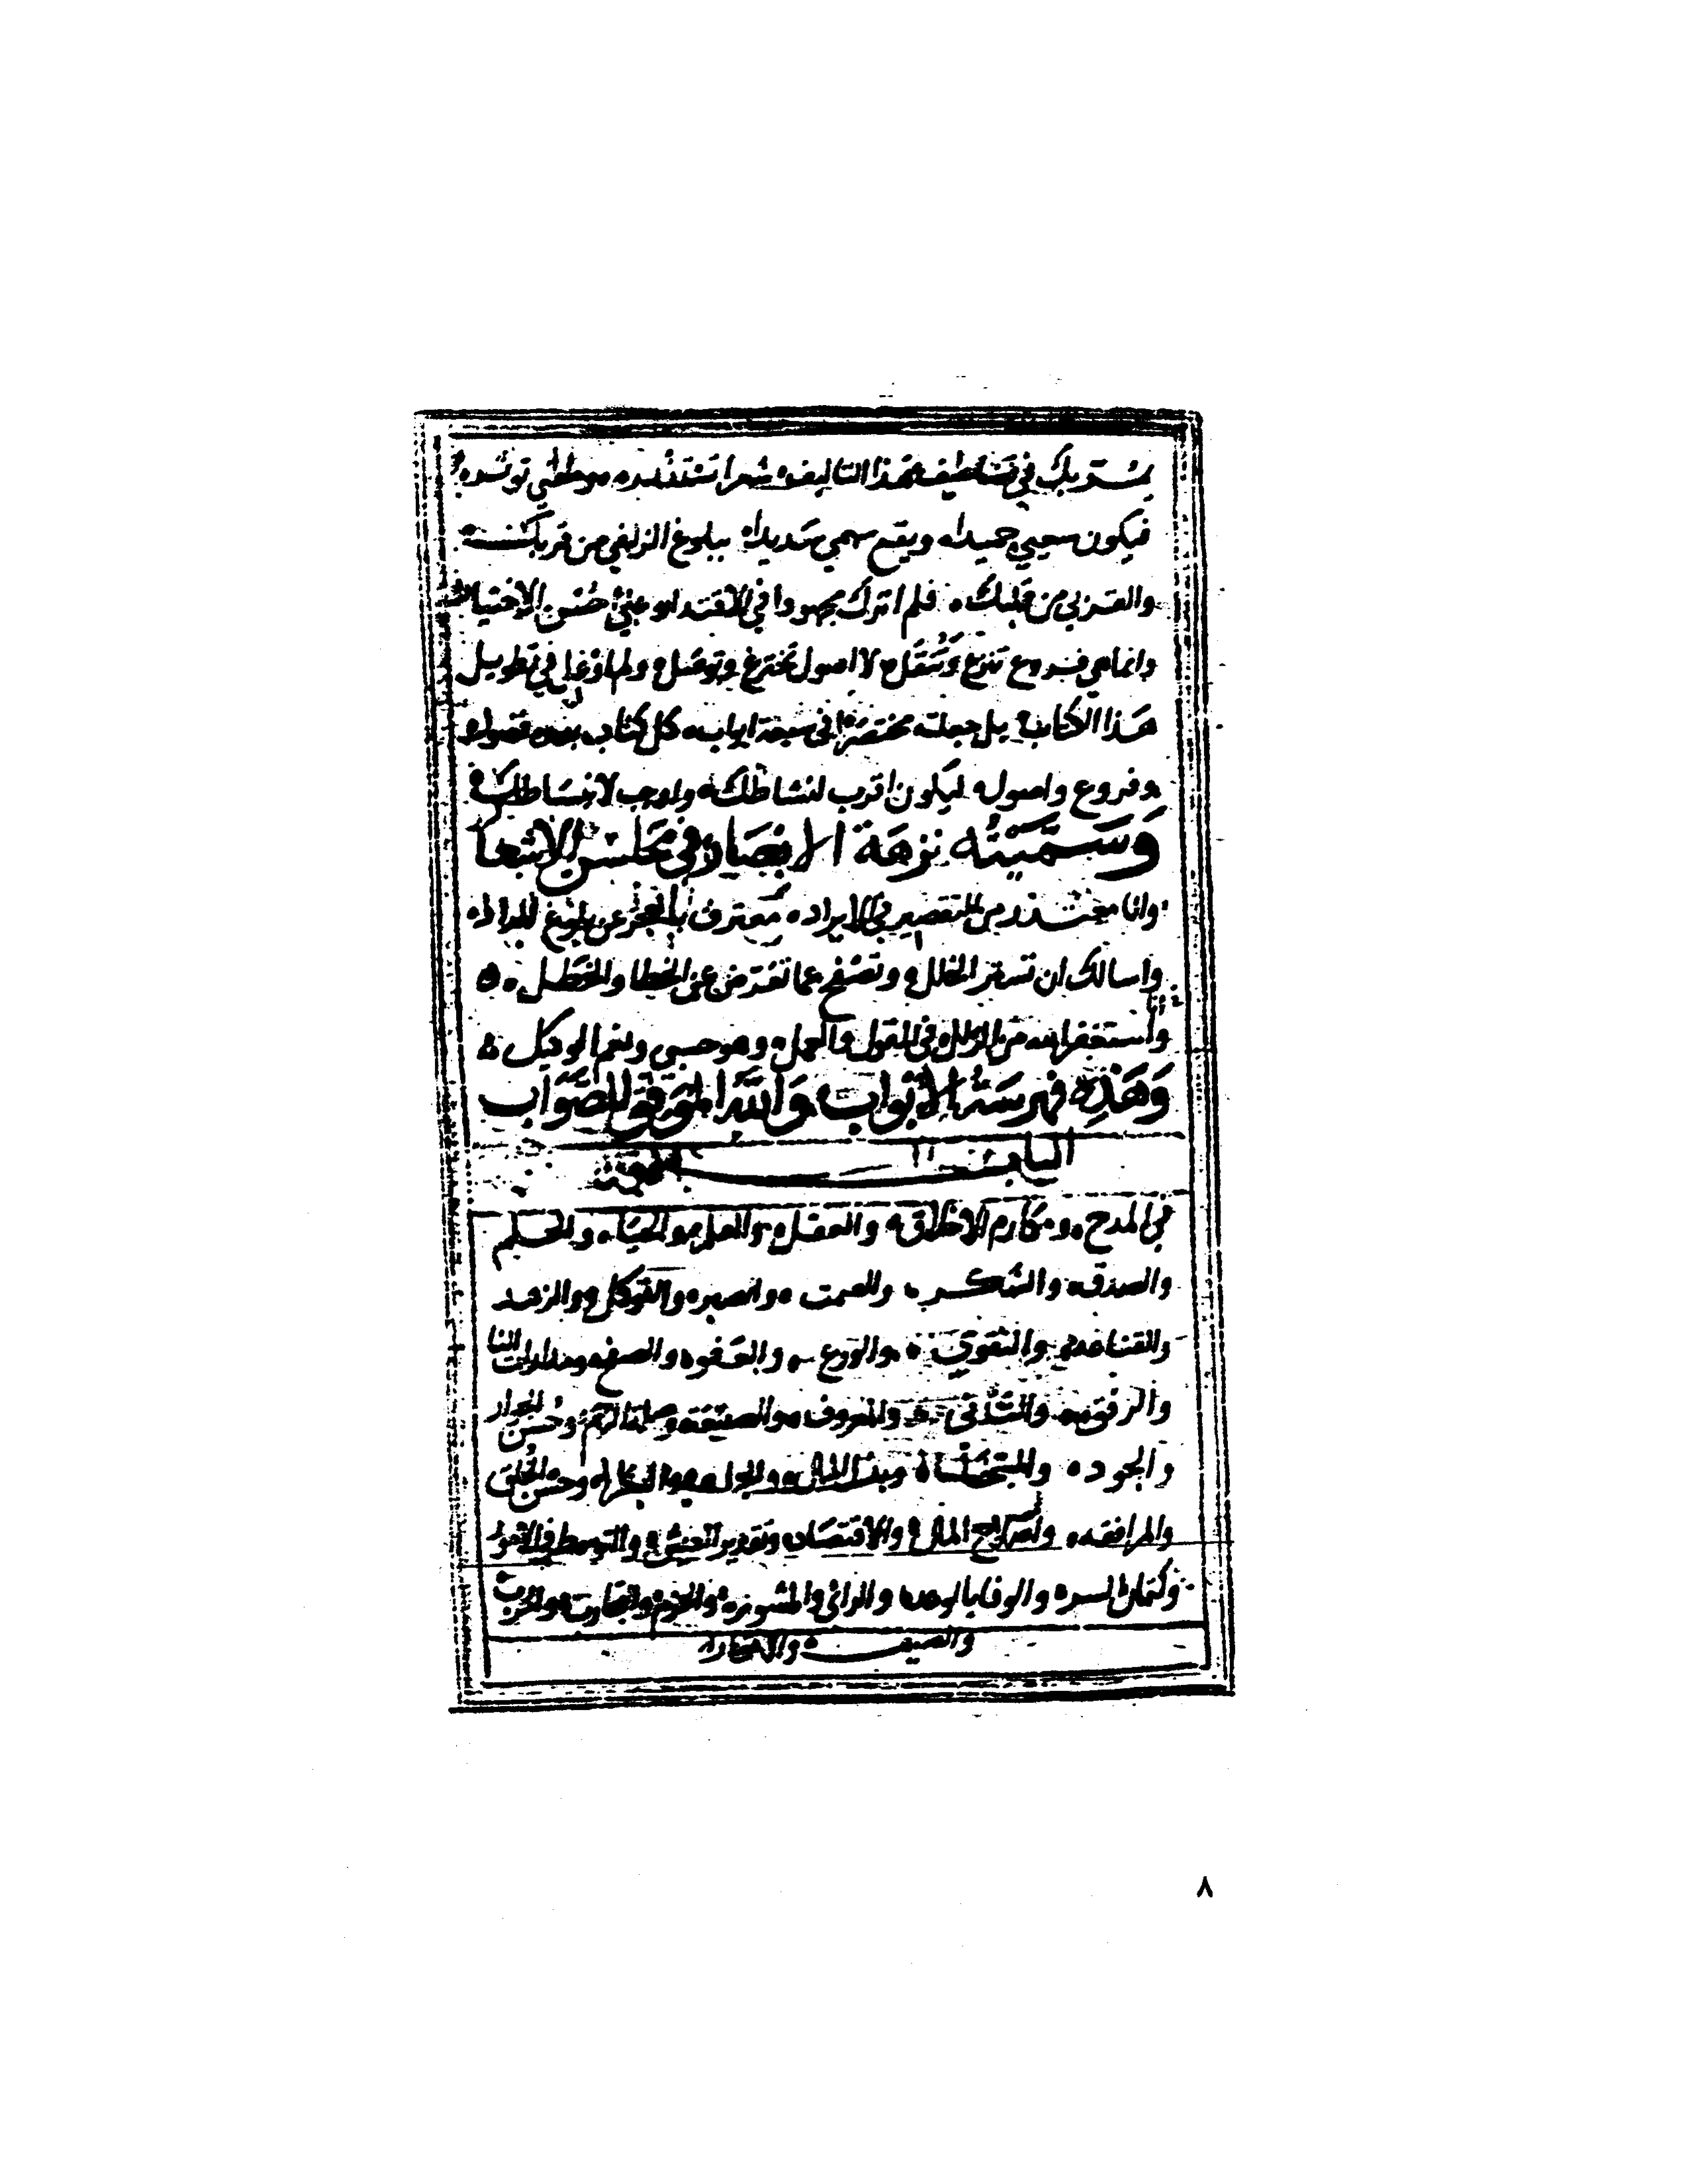 يمر بك في هذا التاليف شعرا تو نشده
فيكون سعيي حميدا ويقع سهمي سديدا ببلوغ الزلفي من قربك
والقربي من قلبك فلم اترك مجهودا في الاقتدا حسن الاختيا
وانما هي فروع تنزع وتنقل لا اصول تخترع وتوصل ولم في تطويل
هذا الكتاب بل جعلته مختصرا في سبعة ابواب كل كتاب
وفروع واصول ليكون اقرب لنشاطك واوجب لانبساطك
وَسَمَّيْتُه نزهَة الابصار في محاسن الاشعا
وانا معتذر من التقصير في الايراد معترف بالعجز عن بلوغ المراد
واسالك ان تستر الخلل وتصفح عما تعترض عن الخطا والخطل
وأستغفر الله من الزلل في القول والعمل وهو حسبي ونعم الوكيل
وَهَذِه فهرسَة الابوَاب وَاللَّه الموَفق للصَّوَاب
الباب
في المدح ومكارم الاخلاق والعقل والعلم والحيا والحلم
والصدق والشكر والصمت والصبر والتوكل والزهد
والقناعه والتقوي والورع والعفو والصفح ومدارات النا
والرفق والتأني والمعروف والصنيعه وصلة الرحم وحُسن الجوار
والجود والسخا وبذل المال وحسن الخلق
والمرافقه واصلاح المال والاقتصاد وتقدير العيش والتوسط في الامو
وكتمان السر والوفا بالوعد والراي والمشوره والحزم والتجارب والحرب
والصيف
٨